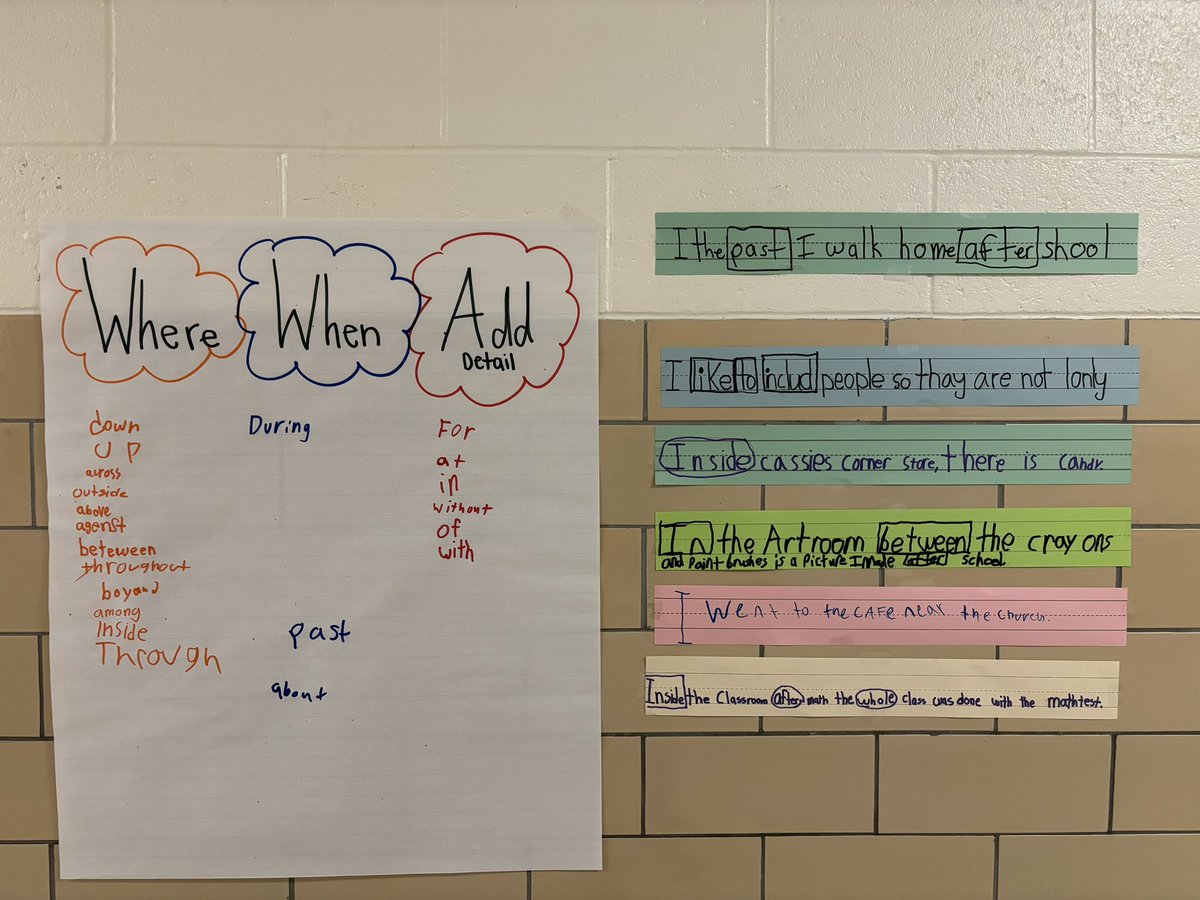 Where
When
Add
Detail
down
up
across
outside
above
agenst
beteween
throughout
boyand
among
Inside
Through
During
past
about
For
at
in
without
of
with
I the past I walk home after shool
I like to includ people so thay are not lonly
Inside cassies corner store, there is candy.
In the Artroom between the crayons
and Paint brushes is a Picture I made after school.
I went to the CAFE near the church.
Inside the Classroom after math the whole class was done with the math test.